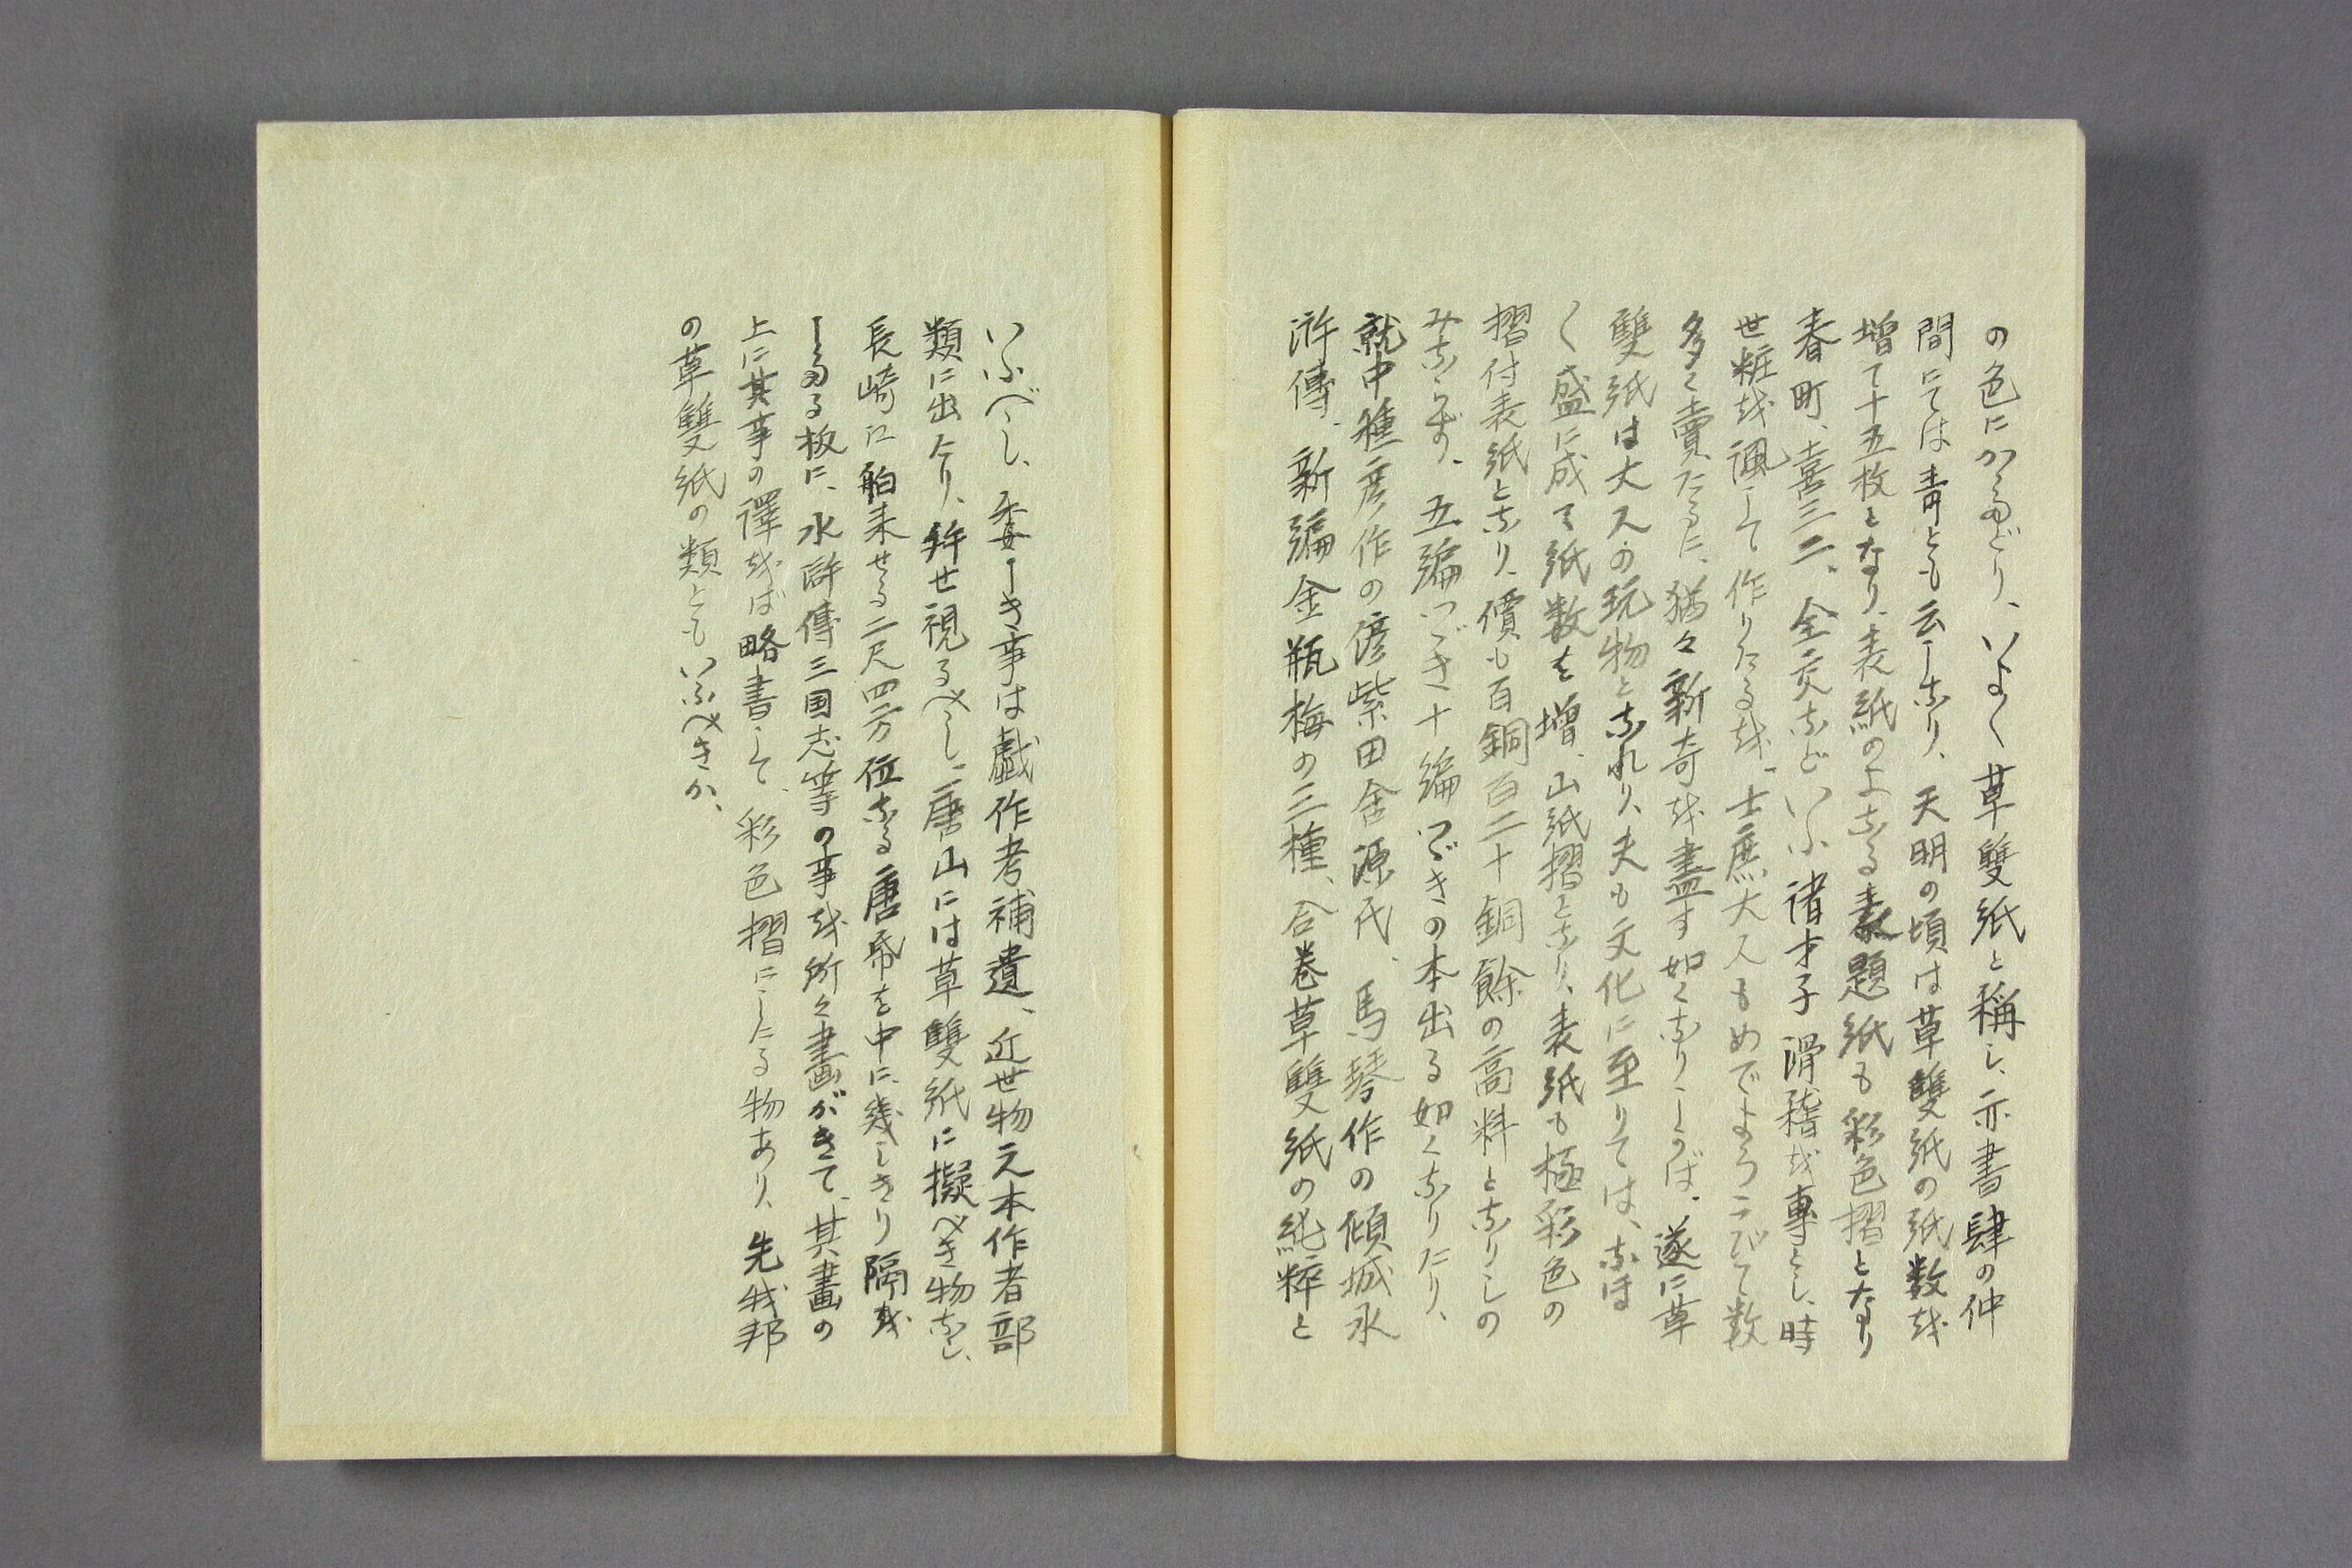 の色にかへるどり、いよ〱草雙紙と稱し、亦書肆の仲
間にては青とも云しなり、天明の頃は草雙紙の紙数を
増て十五枚となり、表紙の上なる表題紙も彩色摺となり
春町、喜三二、全交などいふ諸才子滑稽を專とし、時
世粧を諷して作りたるを、士庶大人もめでよろこびて数
多く賣たるに、猶々新奇を盡す如くなりしかば、遂に草
雙紙は大人の玩物となれり、夫も文化に至りては、なほ
〱盛に成て紙数を増、山紙摺となり、表紙も極彩色の
摺付表紙となり、價も百銅百二十銅餘の高料となりしの
みならず、五編つづき十編つづきの本出る如くなりたり、
就中種彦作の偐紫田舎源氏、馬琴作の傾城水
滸傳、新編金瓶梅の三種、合巻草雙紙の純粹と
いふべし、委しき事は戯作者考補遺、近世物之本作者部
類に出たり、併せ視るべし、唐山には草雙紙に擬べき物なし、
長崎に舶来せる二尺四方位なる唐帋を中に幾しきり隔を
したる板に、水滸傳三国志等の事を所々畫がきて、其畫の
上に其事の譯をば略書して、彩色摺にしたる物あり、先我邦
の草雙紙の類ともいふべきか、